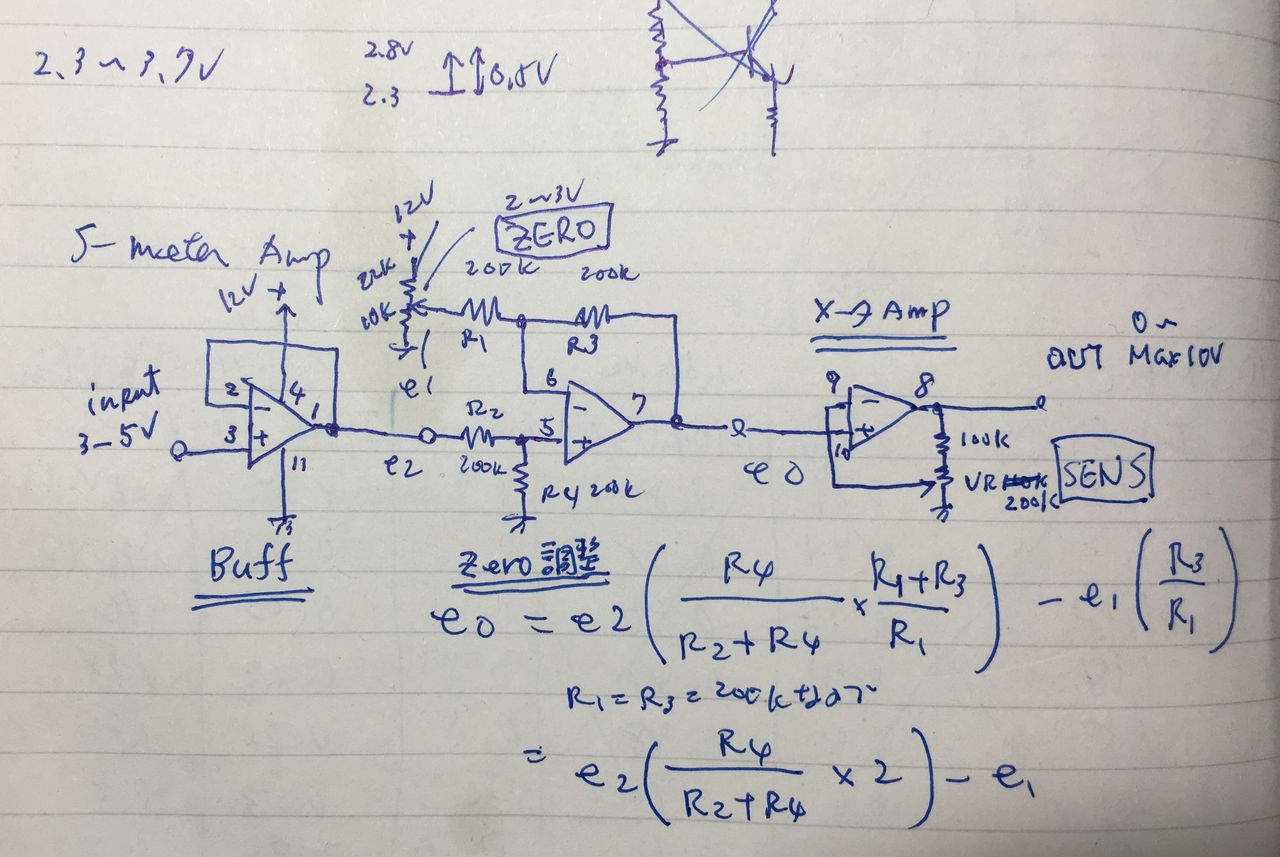 2.3~3.7V
2.8V
2.3
0.5V
2~3V
ZERO
12V
+
S-meter Amp
12V +
22K
10K
200K
200K
R1
R3
e1
X→Amp
0~
OUT Max10V
input
3-5V
2
3
4
1
11
-
+
e2
R2
200K
R4 200K
6
5
7
-
+
e0
9
10
8
-
+
100K
VR
200K
SENS
Buff
Zero調整
e0 = e2 ( R4 / R2+R4 × R1+R3 / R1 ) - e1 ( R3 / R1 )
R1=R3=200Kなので
= e2 ( R4 / R2+R4 × 2 ) - e1